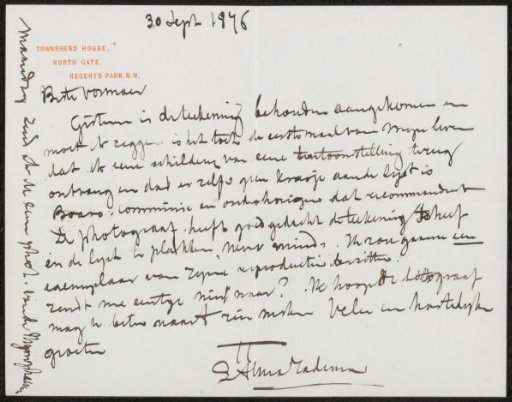 30 Sept 1876
TOWNSHEND HOUSE,
NORTH GATE,
REGENTS PARK. N.W.
Beste Vosmaer
Gisteren is de teekening behouden aangekomen en
moet ik zeggen is het toch de eerste maal van mijn leven
dat ik eene schilderij van eene tentoonstelling terug
ontvang en dat er zelfs geen krasje aan de lijst is
Bravo. commissie en
De photograaf heeft goed gedacht de teekening scheef
in de lijst te plakken, never mind. Ik zou gaarne een
exemplaar van zijne reproductie bezitten
zendt me eentje niet waar? Ik hoop de
mag te beter Vele en hartelijke
groeten
L Alma Tadema
Maandag zend ik de een phot. van de